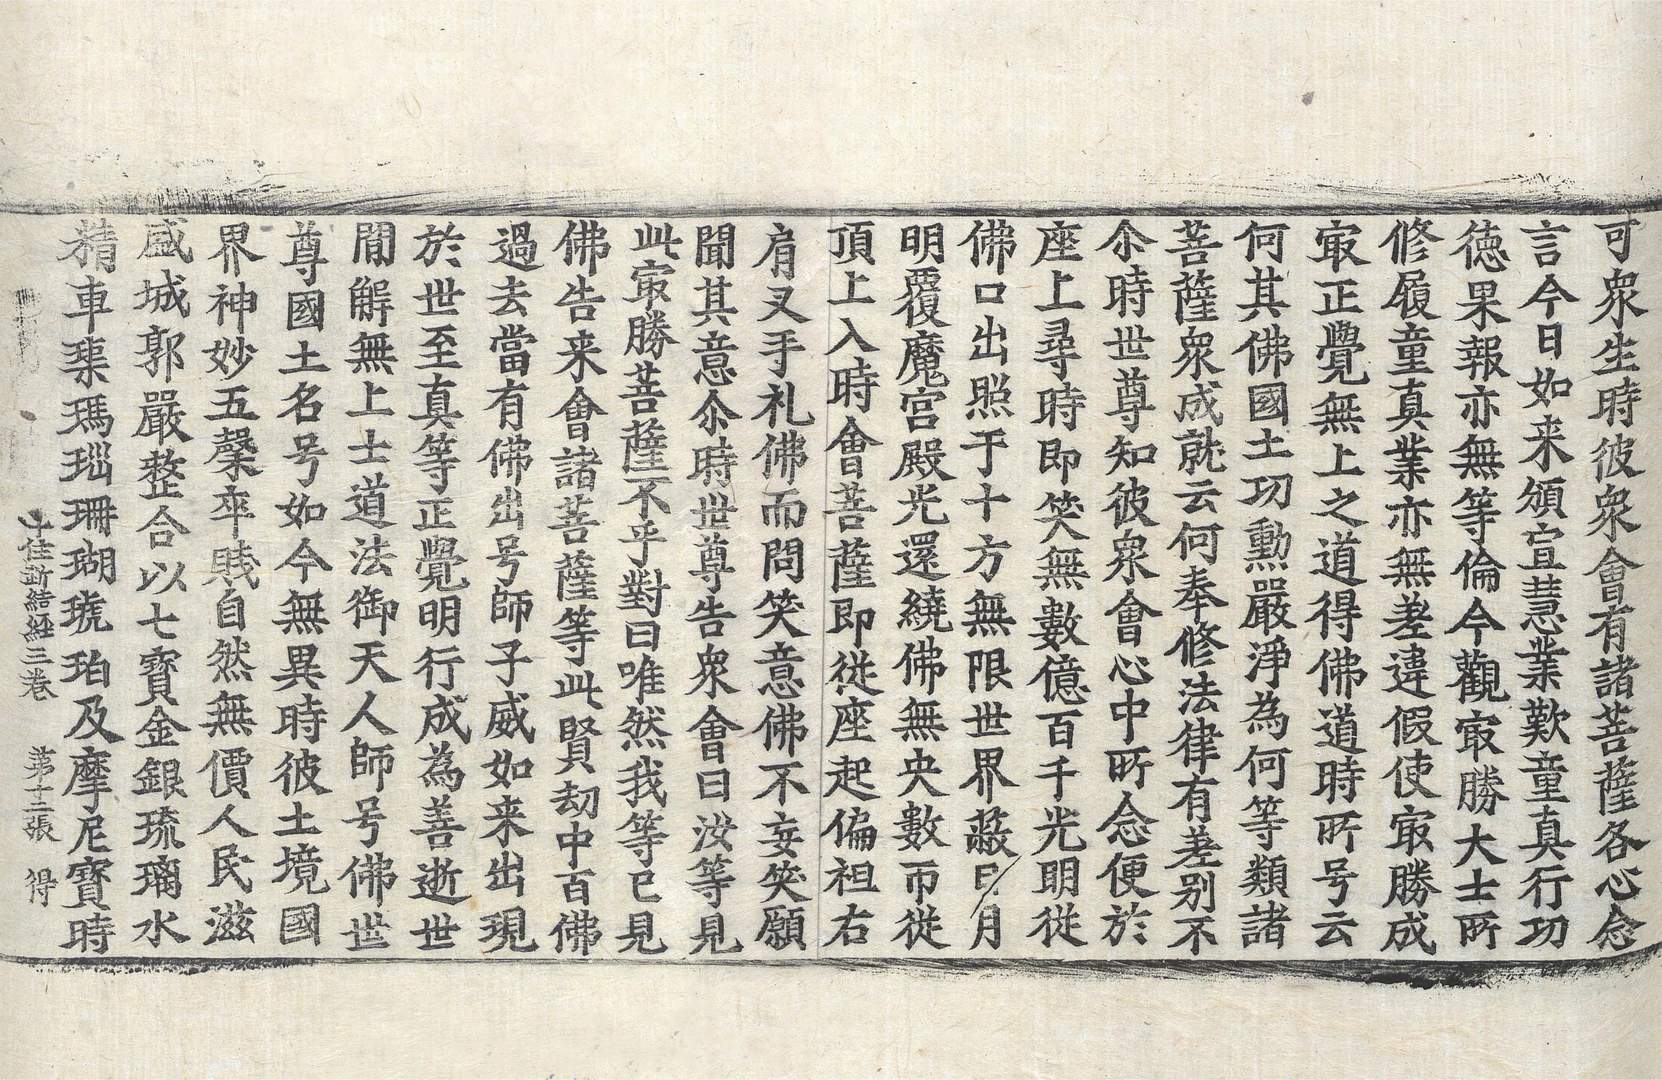 可衆生時彼衆會有諸菩薩各心念
言今日如来頒宣慧業歎童真行功
徳果報亦無等倫今觀㝡勝大士所
修履童真業亦無差違假使㝡勝成
㝡正覺無上之道得佛道時所号云
何其佛國土功勲嚴淨為何等類諸
菩薩衆成就云何奉修法律有差别不
尒時世尊知彼衆會心中所念便於
座上尋時即笑無數億百千光明従
佛口出照于十方無限世界蔽日月
明覆魔宫殿光還繞佛無央數帀従
頂上入時會菩薩即従座起偏袒右
肩叉手礼佛而問笑意佛不妄笑願
聞其意尒時世尊告衆會曰汝等見
此㝡勝菩薩不乎對曰唯然我等已見
佛告来會諸菩薩等此賢劫中百佛
過去當有佛出号師子威如来出現
於世至真等正覺明行成為善逝世
間解無上士道法御天人師号佛世
尊國土名号如今無異時彼土境國
界神妙五槃卒賤自然無價人民滋
盛城郭嚴整合以七寳金銀琉璃水
精車磲瑪瑙珊瑚琥珀及摩尼寳時
十住断結経三巻　第十二張　得